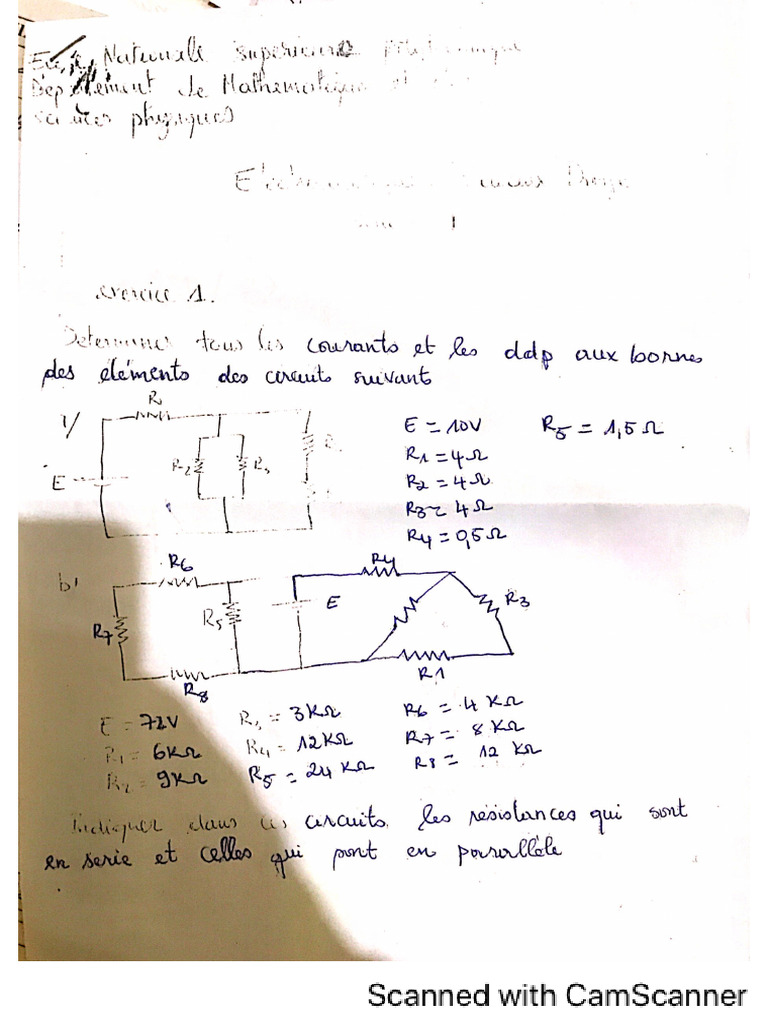 Nationale supérieure
Département de Mathematique et
sciences physiques
exercice 1.
Determiner tous les courants et les ddp aux bornes
des élements des circuits suivant
1/
R1
E = 10V R5 = 1,5 Ω
R1 = 4Ω
R2 = 4Ω
R3 = 4Ω
R4 = 0,5Ω
E
R2
R3
b/
R6
R4
R7
R5
E
R3
R8
R1
E = 72V R3 = 3KΩ R6 = 4 KΩ
R1 = 6KΩ R4 = 12KΩ R7 = 8 KΩ
R2 = 9KΩ R5 = 24 KΩ R8 = 12 KΩ
Indiquer dans ces circuits les résistances qui sont
en serie et celles qui sont en parallèle
Scanned with CamScanner